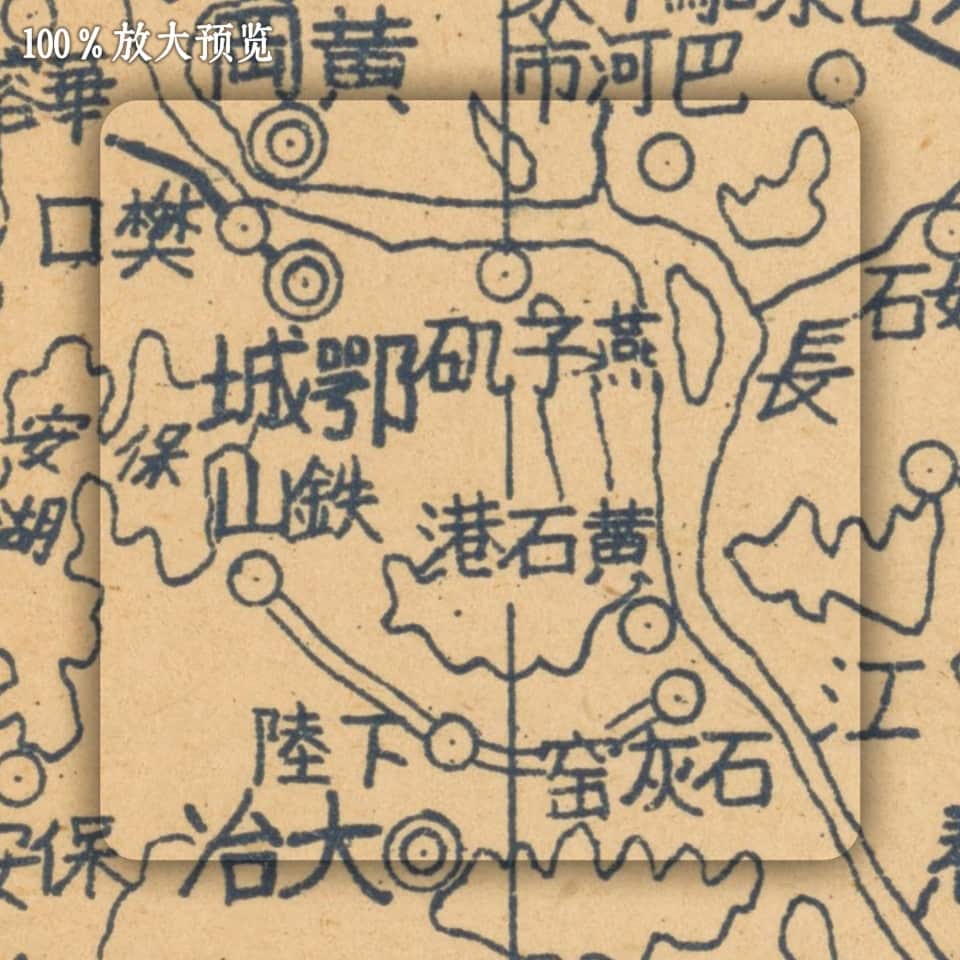 100%放大预览
黄岡
巴河市
華
樊口
鄂城
燕子矶
石
長江
保安湖
鉄山
黄石港
下陸
石灰窑
大冶
保安